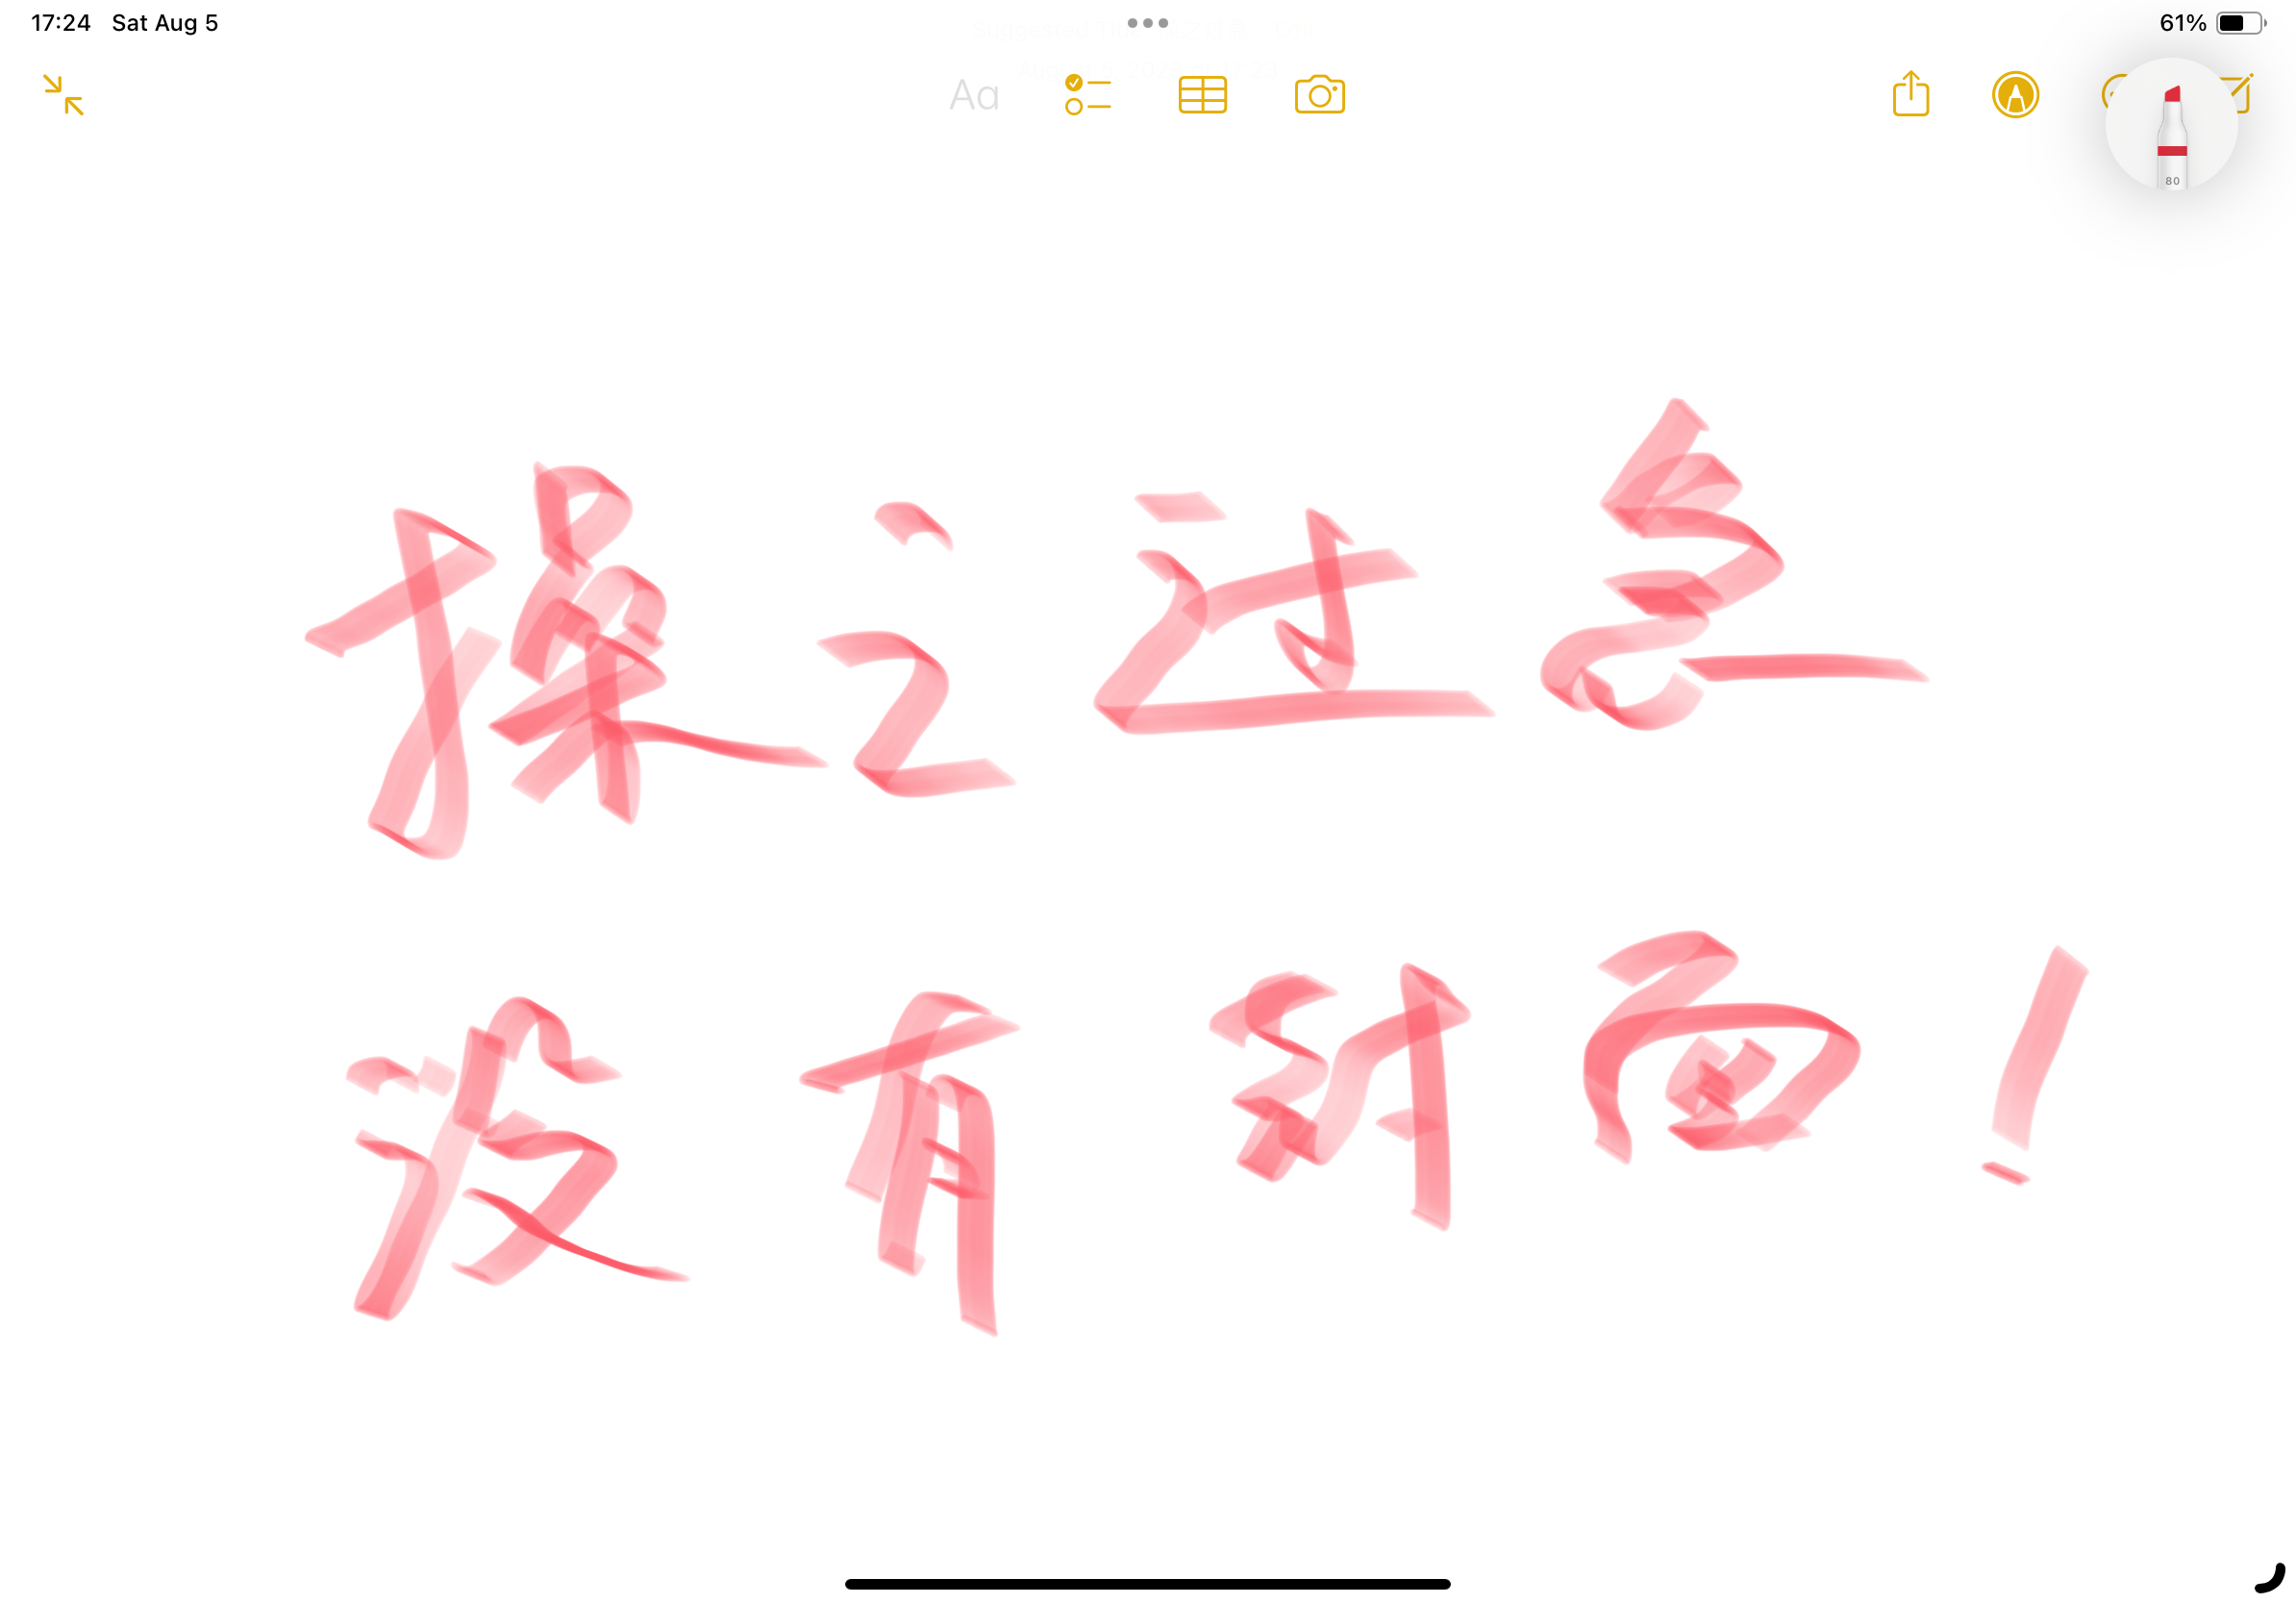 17:24 Sat Aug 5
61%
Aa
80
操之过急
没有斜面!